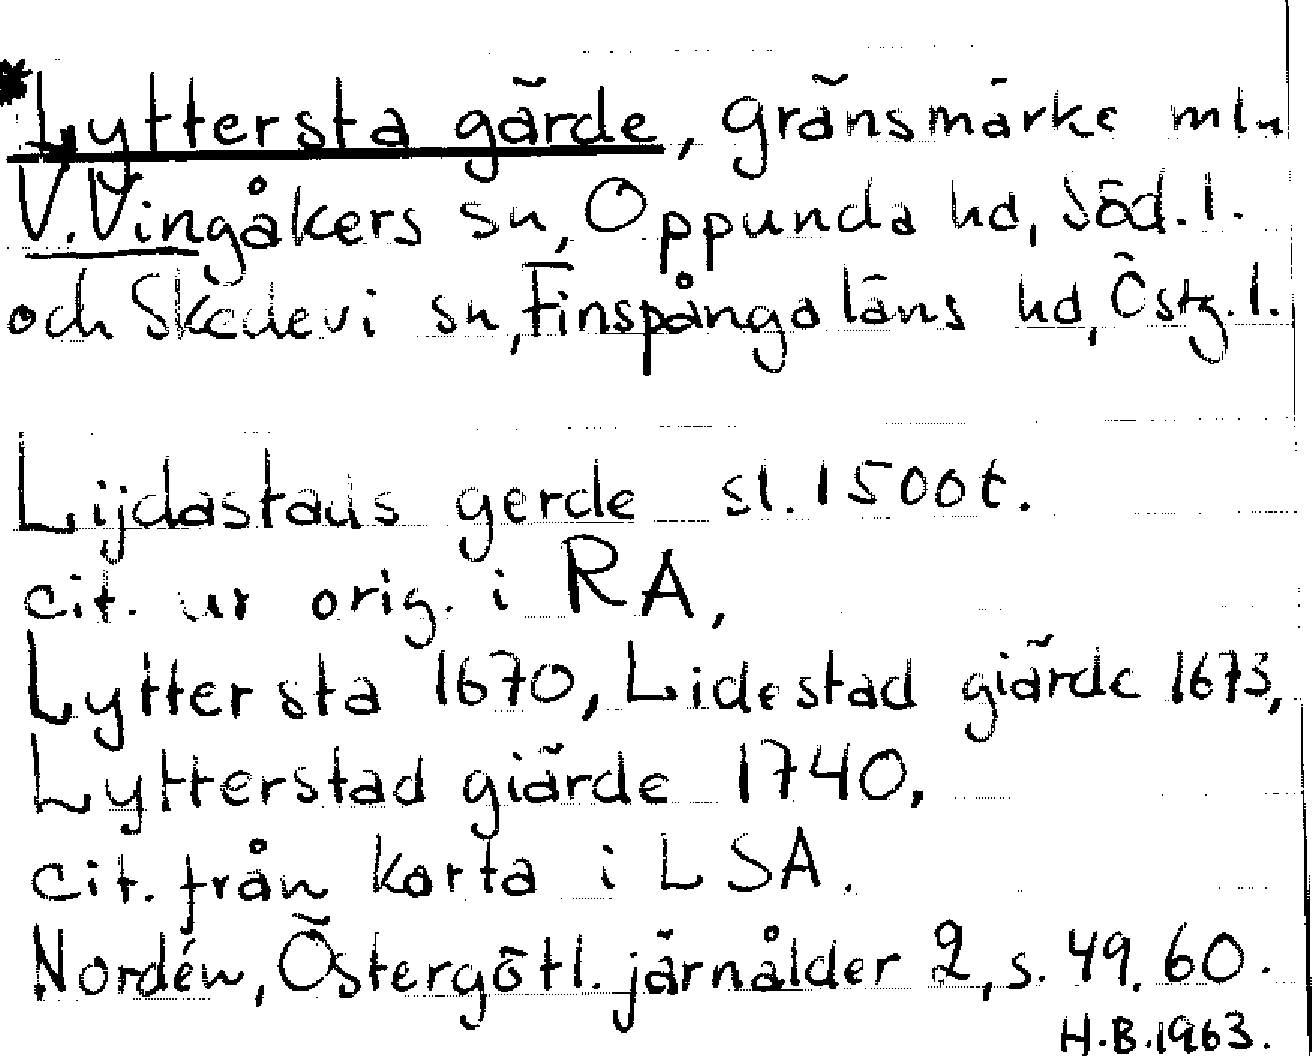 *Lyttersta gärde, gränsmärke mln
V. Vingåkers sn, Oppunda hd, Söd. l.
och Skedevi sn, Finspånga läns hd, Östg. l.
Lijdastads gerde sl. 1500t.
cit. ur orig. i RA,
Lyttersta 1670, Lidestad giärde 1673,
Lytterstad giärde 1740,
cit. från karta i LSA.
Nordén, Östergötl. järnålder 2, s. 49. 60.
H.B. 1963.